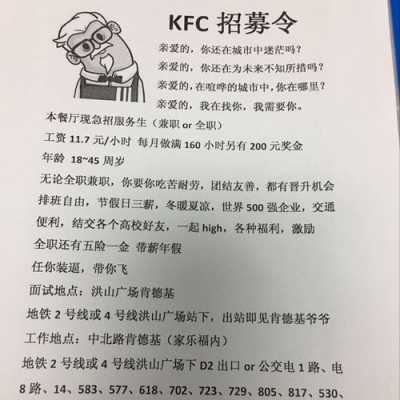 KFC 招募令
亲爱的，你还在城市中迷茫吗？
亲爱的，你还在为未来不知所措吗？
亲爱的，在喧哗的城市中，你在哪里？
亲爱的，我在找你，我需要你。
本餐厅现急招服务生（兼职 or 全职）
工资 11.7 元/小时 每月做满 160 小时另有 200 元奖金
年龄 18~45 周岁
无论全职兼职，你要你吃苦耐劳，团结友善，都有晋升机会
排班自由，节假日三薪，冬暖夏凉，世界 500 强企业，交通
便利，结交各个高校好友，一起 high，各种福利，激励
全职还有五险一金 带薪年假
任你装逼，带你飞
面试地点：洪山广场肯德基
地铁 2 号线或 4 号线洪山广场站下，出站即见肯德基爷爷
工作地点：中北路肯德基（家乐福内）
地铁 2 号线或 4 号线洪山广场下 D2 出口 or 公交电 1 路、电
8 路、14、583、577、618、702、723、729、805、817、530、